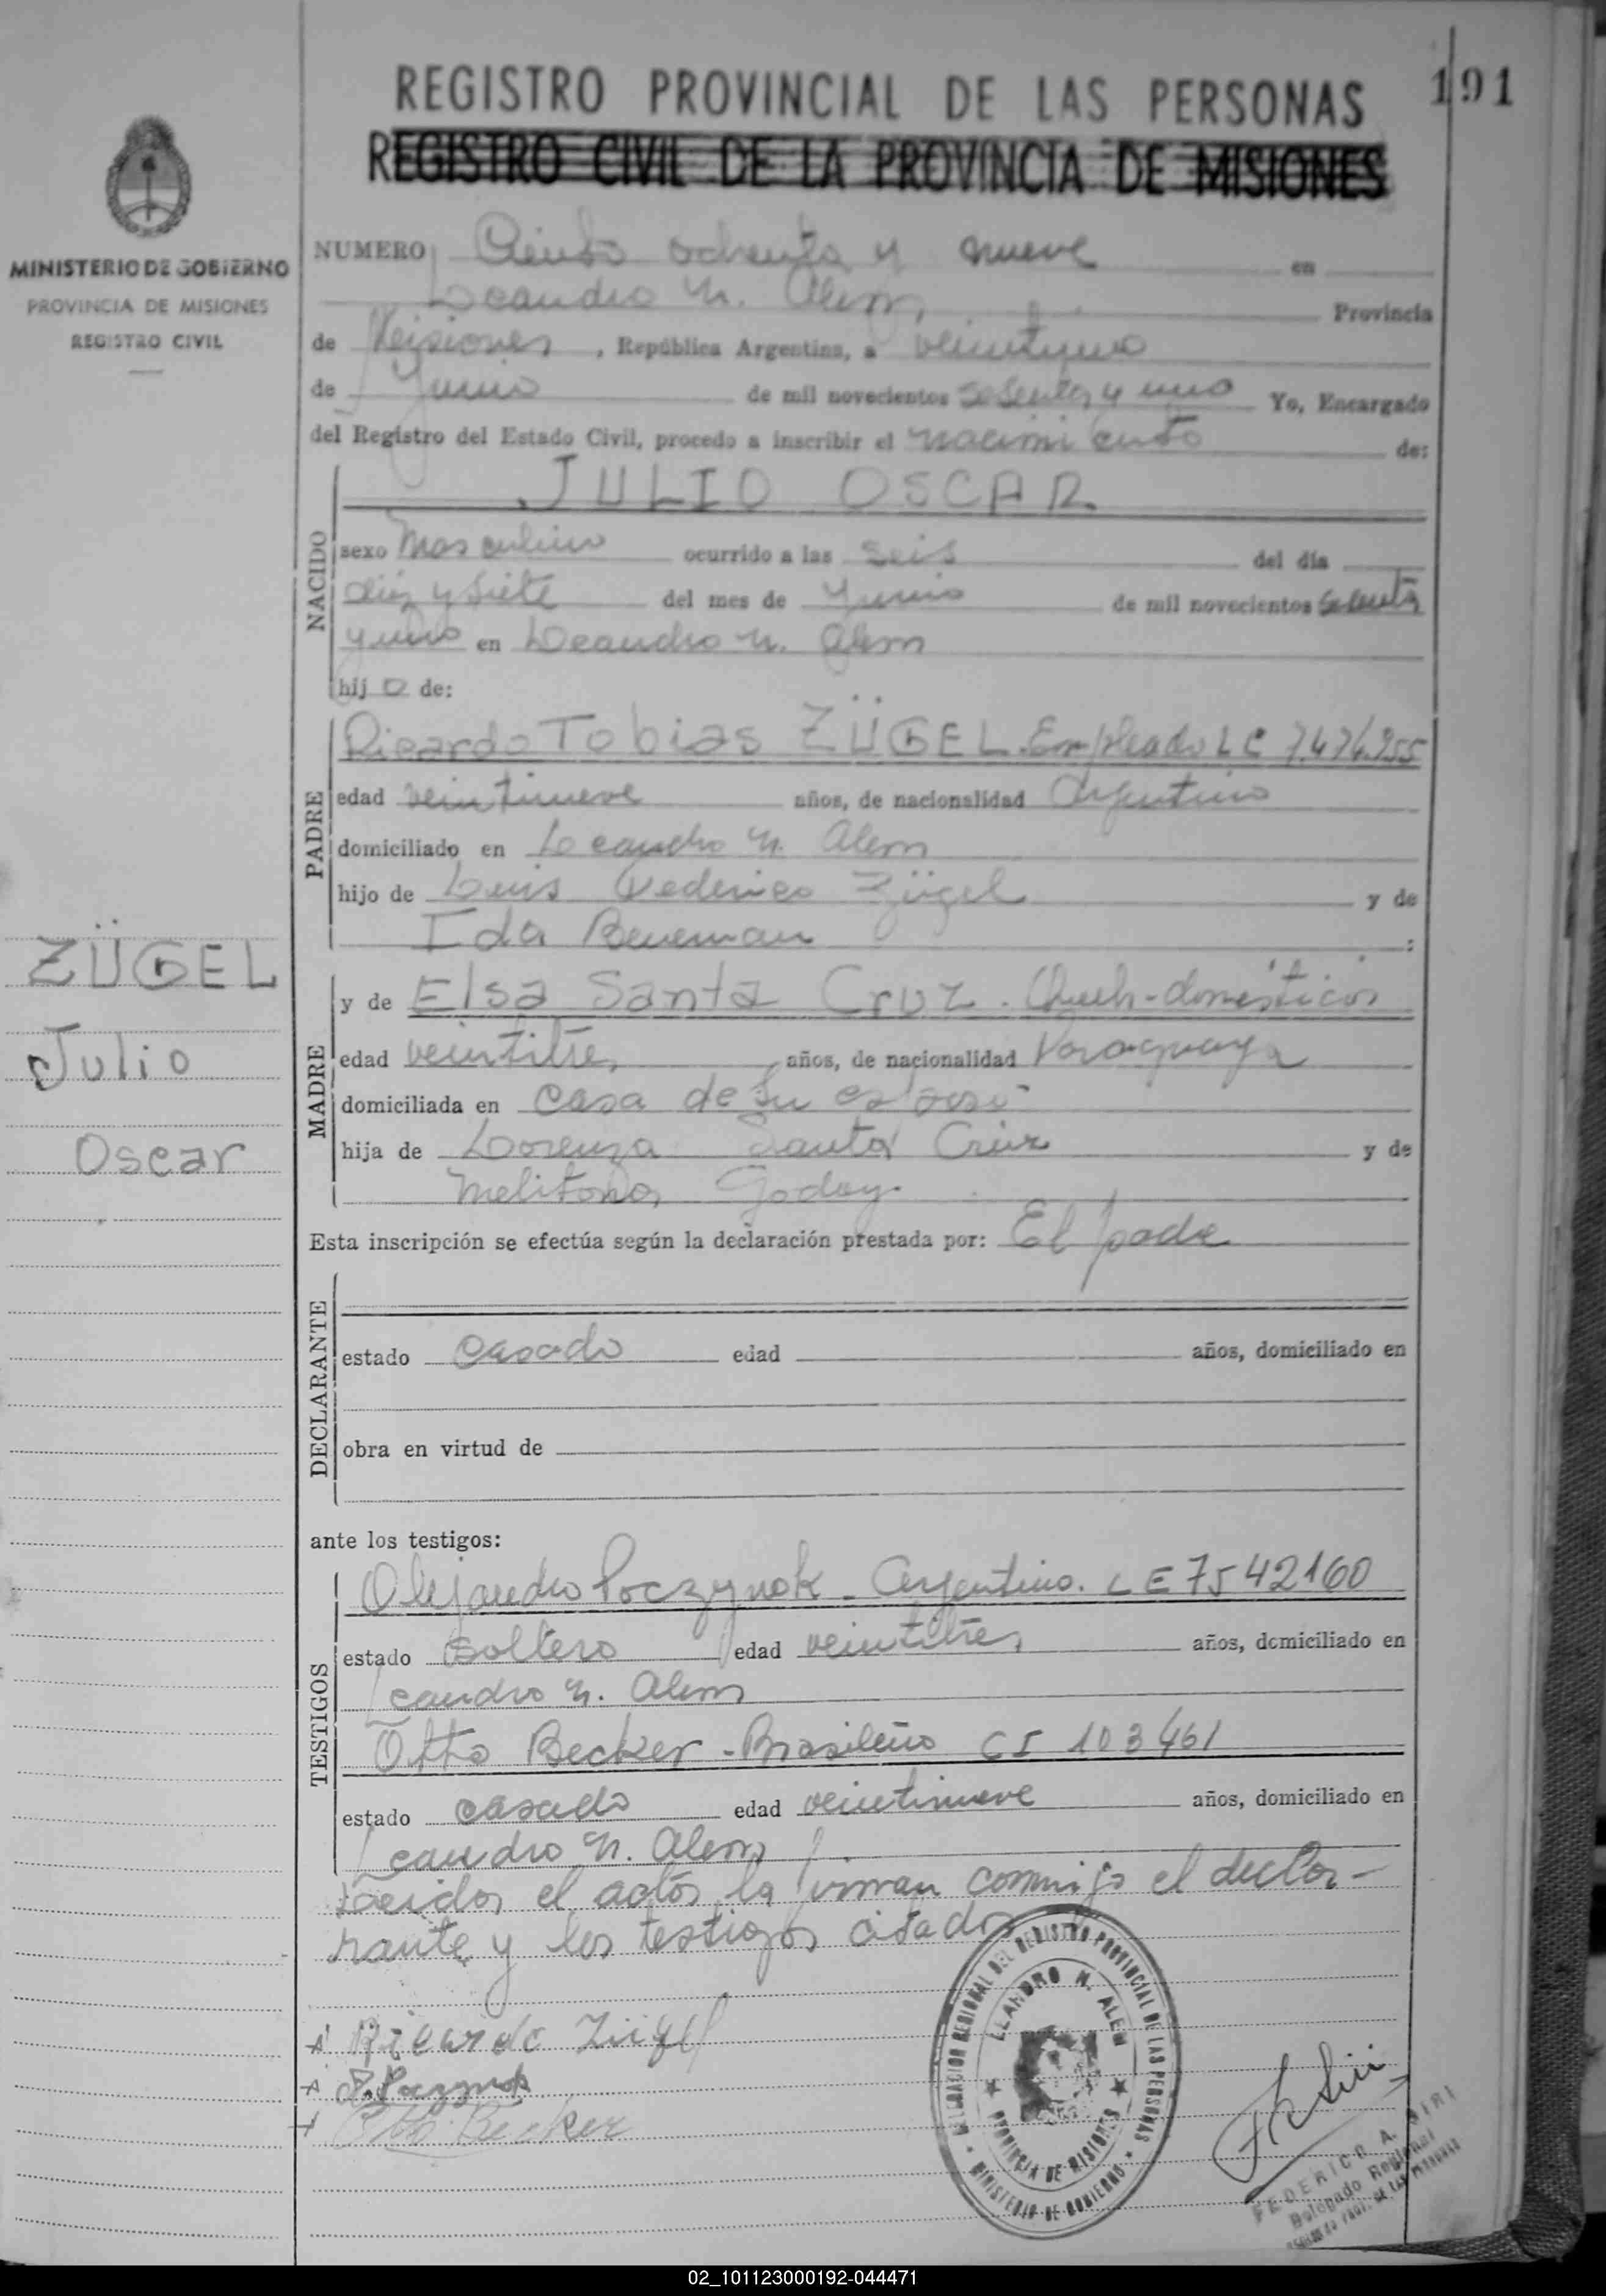 191
REGISTRO PROVINCIAL DE LAS PERSONAS
REGISTRO CIVIL DE LA PROVINCIA DE MISIONES
MINISTERIO DE GOBIERNO
PROVINCIA DE MISIONES
REGISTRO CIVIL
NUMERO Ciento ochenta y nueve en
Leandro N. Alem, Provincia
de Misiones, República Argentina, a veintiuno
de Junio de mil novecientos sesenta y uno Yo, Encargado
del Registro del Estado Civil, procedo a inscribir el nacimiento de:
NACIDO
JULIO OSCAR
sexo Masculino ocurrido a las seis del día
diez y siete del mes de Junio de mil novecientos sesenta
y uno en Leandro N. Alem
hij o de:
PADRE
Ricardo Tobias ZÜGEL. Empleado L E 7.474.955
edad veintinueve años, de nacionalidad Argentino
domiciliado en Leandro N. Alem
hijo de Luis Federico Zügel y de
Ida Beneman :
ZÜGEL
Julio
Oscar
MADRE
y de Elsa Santa Cruz. Queh-domésticos
edad veintitres, años, de nacionalidad Paraguaya
domiciliada en casa de su esposo
hija de Lorenza Santa Cruz y de
Melitona Godoy.
Esta inscripción se efectúa según la declaración prestada por: El padre
DECLARANTE
estado casado edad años, domiciliado en
obra en virtud de
ante los testigos:
TESTIGOS
Alejandro Poczynok - Argentino. L E 7542160
estado soltero edad veintitres, años, domiciliado en
Leandro N. Alem
Otto Becker - Brasileño C I 103461
estado casado edad veintinueve años, domiciliado en
Leandro N. Alem
Leida el acta la firman conmigo el decla-
rante y los testigos citados
DELEGACION REGIONAL DEL REGISTRO PROVINCIAL DE LAS PERSONAS
LEANDRO N. ALEM
PROVINCIA DE MISIONES
MINISTERIO DE GOBIERNO
Ricardo Zügel
Otto Becker
FEDERICO A. SIRI
Delegado Regional
02_101123000192-044471